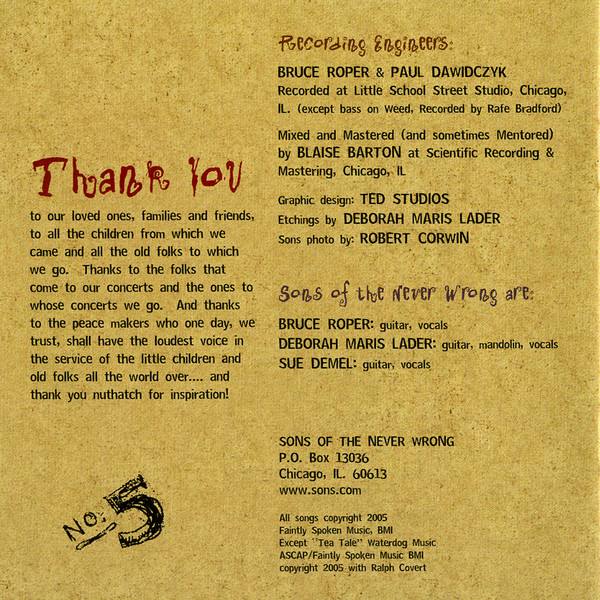 Thank You
to our loved ones, families and friends,
to all the children from which we
came and all the old folks to which
we go. Thanks to the folks that
come to our concerts and the ones to
whose concerts we go. And thanks
to the peace makers who one day, we
trust, shall have the loudest voice in
the service of the little children and
old folks all the world over.... and
thank you nuthatch for inspiration!
No. 5
Recording Engineers:
BRUCE ROPER & PAUL DAWIDCZYK
Recorded at Little School Street Studio, Chicago,
IL. (except bass on Weed, Recorded by Rafe Bradford)
Mixed and Mastered (and sometimes Mentored)
by BLAISE BARTON at Scientific Recording &
Mastering, Chicago, IL
Graphic design: TED STUDIOS
Etchings by DEBORAH MARIS LADER
Sons photo by: ROBERT CORWIN
Sons of the Never Wrong are:
BRUCE ROPER: guitar, vocals
DEBORAH MARIS LADER: guitar, mandolin, vocals
SUE DEMEL: guitar, vocals
SONS OF THE NEVER WRONG
P.O. Box 13036
Chicago, IL. 60613
www.sons.com
All songs copyright 2005
Faintly Spoken Music, BMI
Except ``Tea Tale'' Waterdog Music
ASCAP/Faintly Spoken Music BMI
copyright 2005 with Ralph Covert